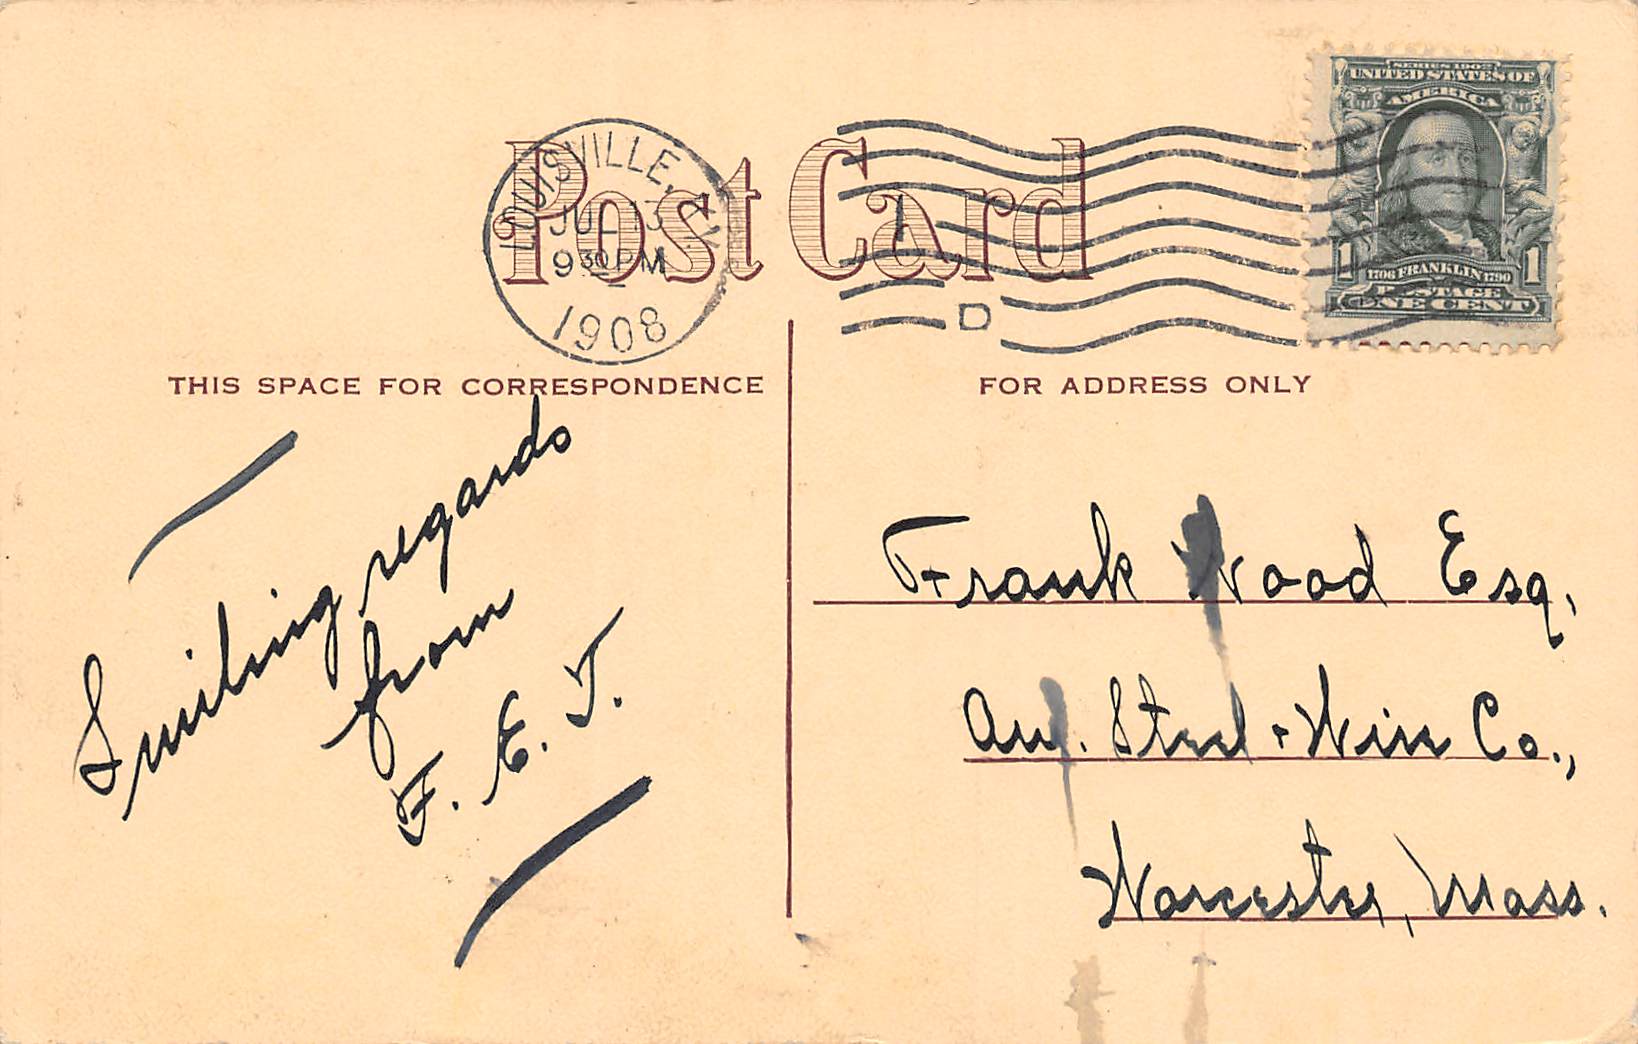 Post Card
LOUISVILLE, KY.
JUL 13
9 30 PM
1908
D
SERIES 1902
UNITED STATES OF
AMERICA
1 1706 FRANKLIN 1790 1
POSTAGE
ONE CENT
THIS SPACE FOR CORRESPONDENCE
Smiling regards
from
F. E. T.
FOR ADDRESS ONLY
Frank Wood Esq,
Am. Steel & Wire Co.,
Worcester, Mass.